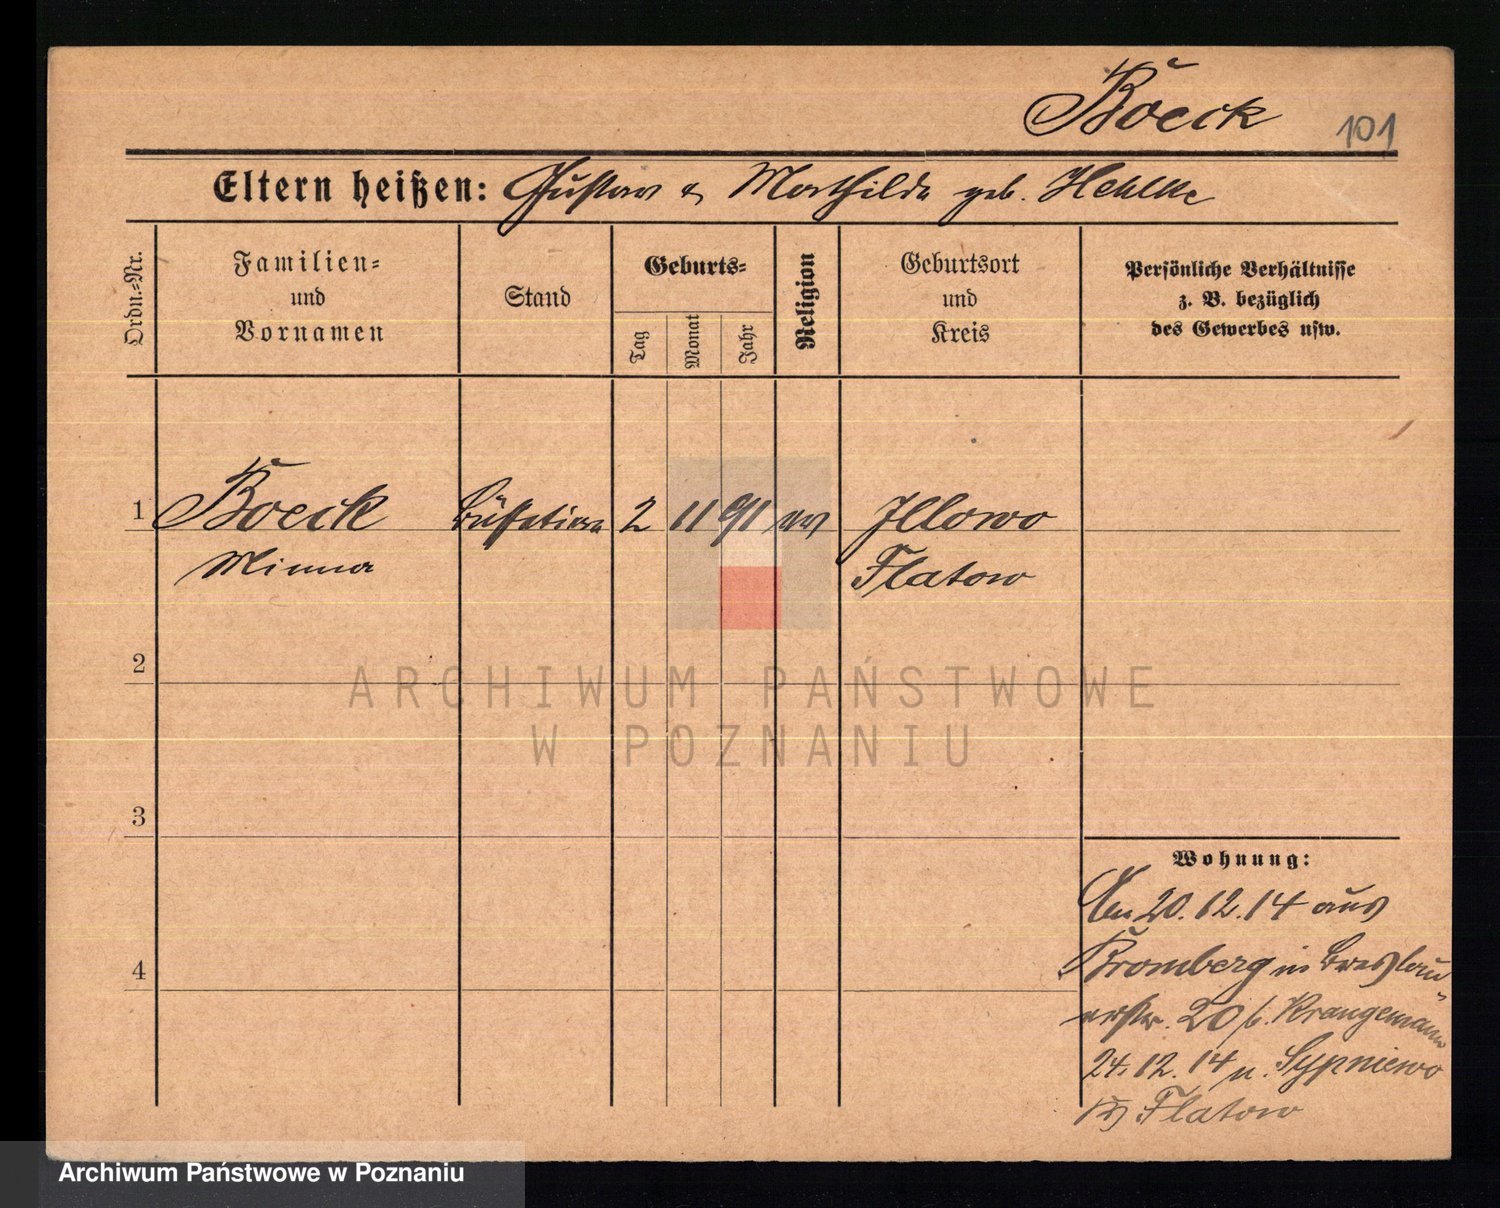 Boeck 101
Eltern heißen: Gustav & Mathilde geb.
Ordn.-Nr.
Familien-
und
Vornamen
Stand
Geburts-
Tag
Monat
Jahr
Religion
Geburtsort
und
Kreis
Persönliche Verhältnisse
z. B. bezüglich
des Gewerbes usw.
1 Boeck Büfetiere 2 11 91 ev Illowo
Minna Flatow
2
ARCHIWUM PAŃSTWOWE
W POZNANIU
3
Wohnung:
Am 20.12.14 aus
Bromberg in Breslau-
erstr. 20 b. Krangemann
4
24.12.14 n. Sypniewo
Kr Flatow
Archiwum Państwowe w Poznaniu